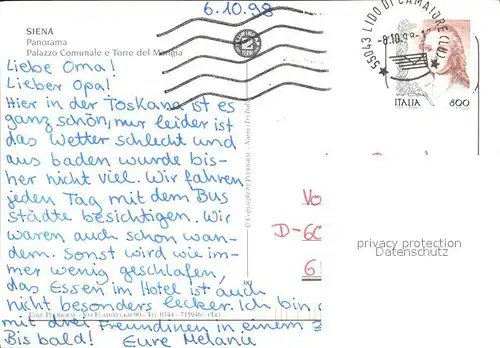 6.10.98
SIENA
Panorama
Palazzo Comunale e Torre del Mangia
Liebe Oma!
Lieber Opa!
Hier in der Toskana ist es
ganz schön, nur leider ist
das Wetter schlecht und
aus baden wurde bis-
her nicht viel. Wir fahren
jeden Tag mit dem Bus
städte besichtigen. Wir
waren auch schon wan-
dern. Sonst wird wie im-
mer wenig geschlafen,
das Essen im Hotel ist auch
nicht besonders lecker. Ich bin
mit drei Freundinnen in einem
Bis bald! Eure Melanie
55043 LIDO DI CAMAIORE (LU)
-8.10.98
ITALIA 800
Vo
D-60
6
privacy protection
Datenschutz
381